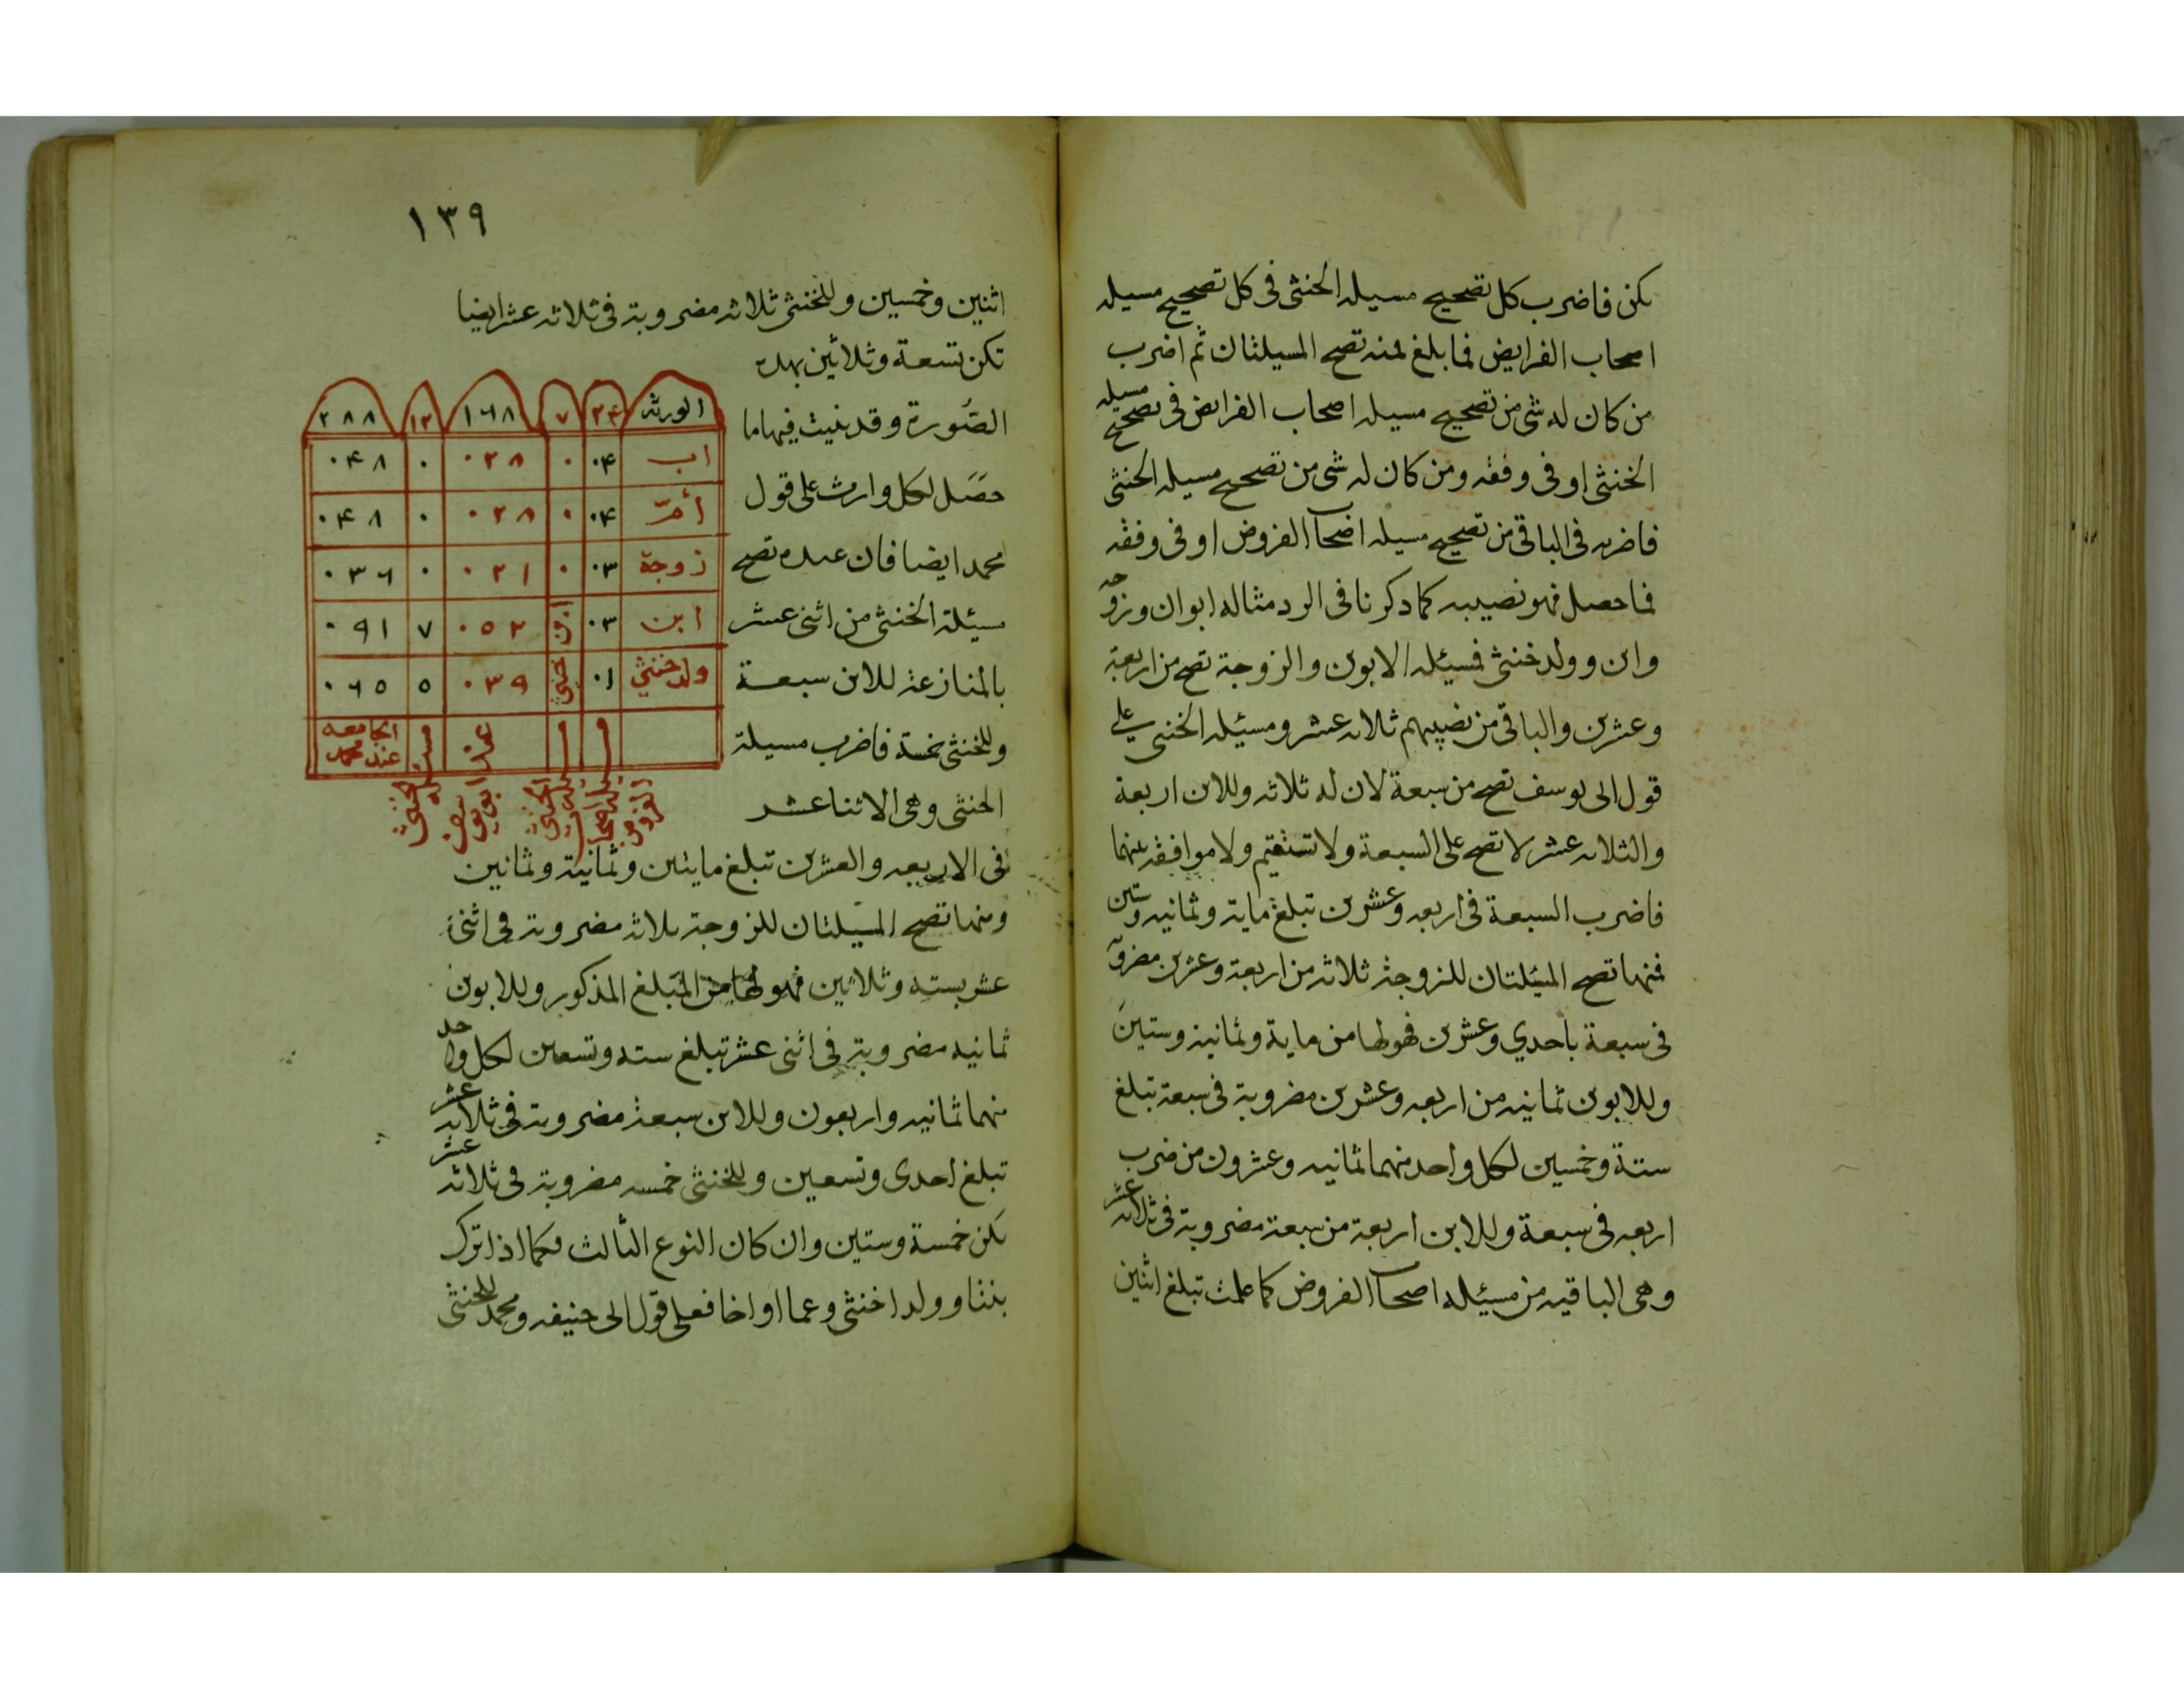 يكن فاضرب كل تصحيح مسيله الخنثى فى كل تصحيح مسيله
اصحاب الفرايض فما بلغ فمنه تصح المسيلتان ثم اضرب
من كان له شى من تصحيح مسيله اصحاب الفرايض فى تصحيح مسيله
الخنثى او فى وفقه ومن كان له شى من تصحيح مسيله الخنثى
فاضربه فى الباقى من تصحيح مسيله اصحاب الفروض او فى وفقه
فما حصل فهو نصيبه كما ذكرنا فى الرد مثاله ابوان وزوجه
وابن وولد خنثى فمسيئله الابوين والزوجة تصح من اربعة
وعشرين والباقى من نصيبهم ثلاثه عشر ومسئيله الخنثى على
قول ابى يوسف تصح من سبعة لان له ثلاثه وللابن اربعة
والثلاثه عشر لا تصح على السبعة ولا تستقيم ولا موافقه عنهما
فاضرب السبعة فى اربعه وعشرين تبلغ ماية وثمانيه وستين
فمنها تصح المسيئلتان للزوجة ثلاثه من اربعة وعشرين مضروبة
فى سبعة باحدي وعشرين فهو لها من ماية وثمانية وستين
وللابوين ثمانيه من اربعه وعشرين مضروبة فى سبعة تبلغ
ستة وخمسين لكل واحد منهما ثمانيه وعشرون من ضرب
اربعه فى سبعة وللابن اربعة من سبعة مضروبة فى ثلاثه عشر
وهى الباقيه من مسيئله اصحاب الفروض كما علمت تبلغ اثنين
١٣٩
اثنين وخمسين وللخنثى ثلاثه مضروبة فى ثلاثه عشر ايضا
تكن تسعة وثلاثين بهذه
الصُورة وقد بنيت فيها ما
حصَل لكل وارث على قول
محمد ايضا فان عنده تصح
مسيئلة الخنثى من اثنى عشر
بالمنازعة للابن سبعة
وللخنثى خمسة فاضرب مسيلة
الخنثى وهى الاثنا عشر
الورثه ٢۴ ٧ ١٦٨ ١٢ ٢٨٨
اب ٠۴ ٠ ٠٢٨ ٠ ٠۴٨
أمّ ٠۴ ٠ ٠٢٨ ٠ ٠۴٨
زوجة ٠٣ ٠ ٠٢١ ٠ ٠٣٦
ابن ٠٣ ابن ٠٥٢ ٧ ٠٩١
ولد خنثي ٠١ خنثى ٠٣٩ ٥ ٠٦٥
مسيله اصحاب الفروض
مسيله الخنثى
عند ابى يوسف
مسيله الخنثى
الجامعه عند محمد
فى الاربعه والعشرين تبلغ مايتين وثمانية وثمانين
ومنها تصح المسيلتان للزوجة ثلاثه مضروبة فى اثنى
عشر بسته وثلاثين فهو لها من المبلغ المذكور وللابوين
ثمانيه مضروبة فى اثنى عشر تبلغ سته وتسعين لكل واحد
منهما ثمانيه واربعون وللابن سبعة مضروبة فى ثلاثه عشر
تبلغ احدى وتسعين وللخنثى خمسه مضروبة فى ثلاثه عشر
تكن خمسة وستين وان كان النوع الثالث فكما اذا ترك
بنتا وولدا خنثى وعما او اخا فعلى قول ابى حنيفه ومحمد للخنثى